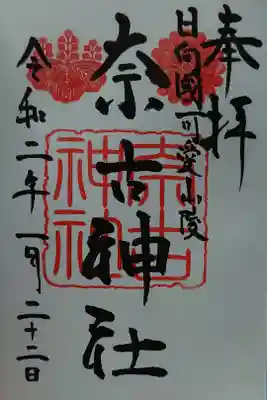 奉拝
日向國可愛山陵
奈古神社
奈古神社
令和二年一月二十二日